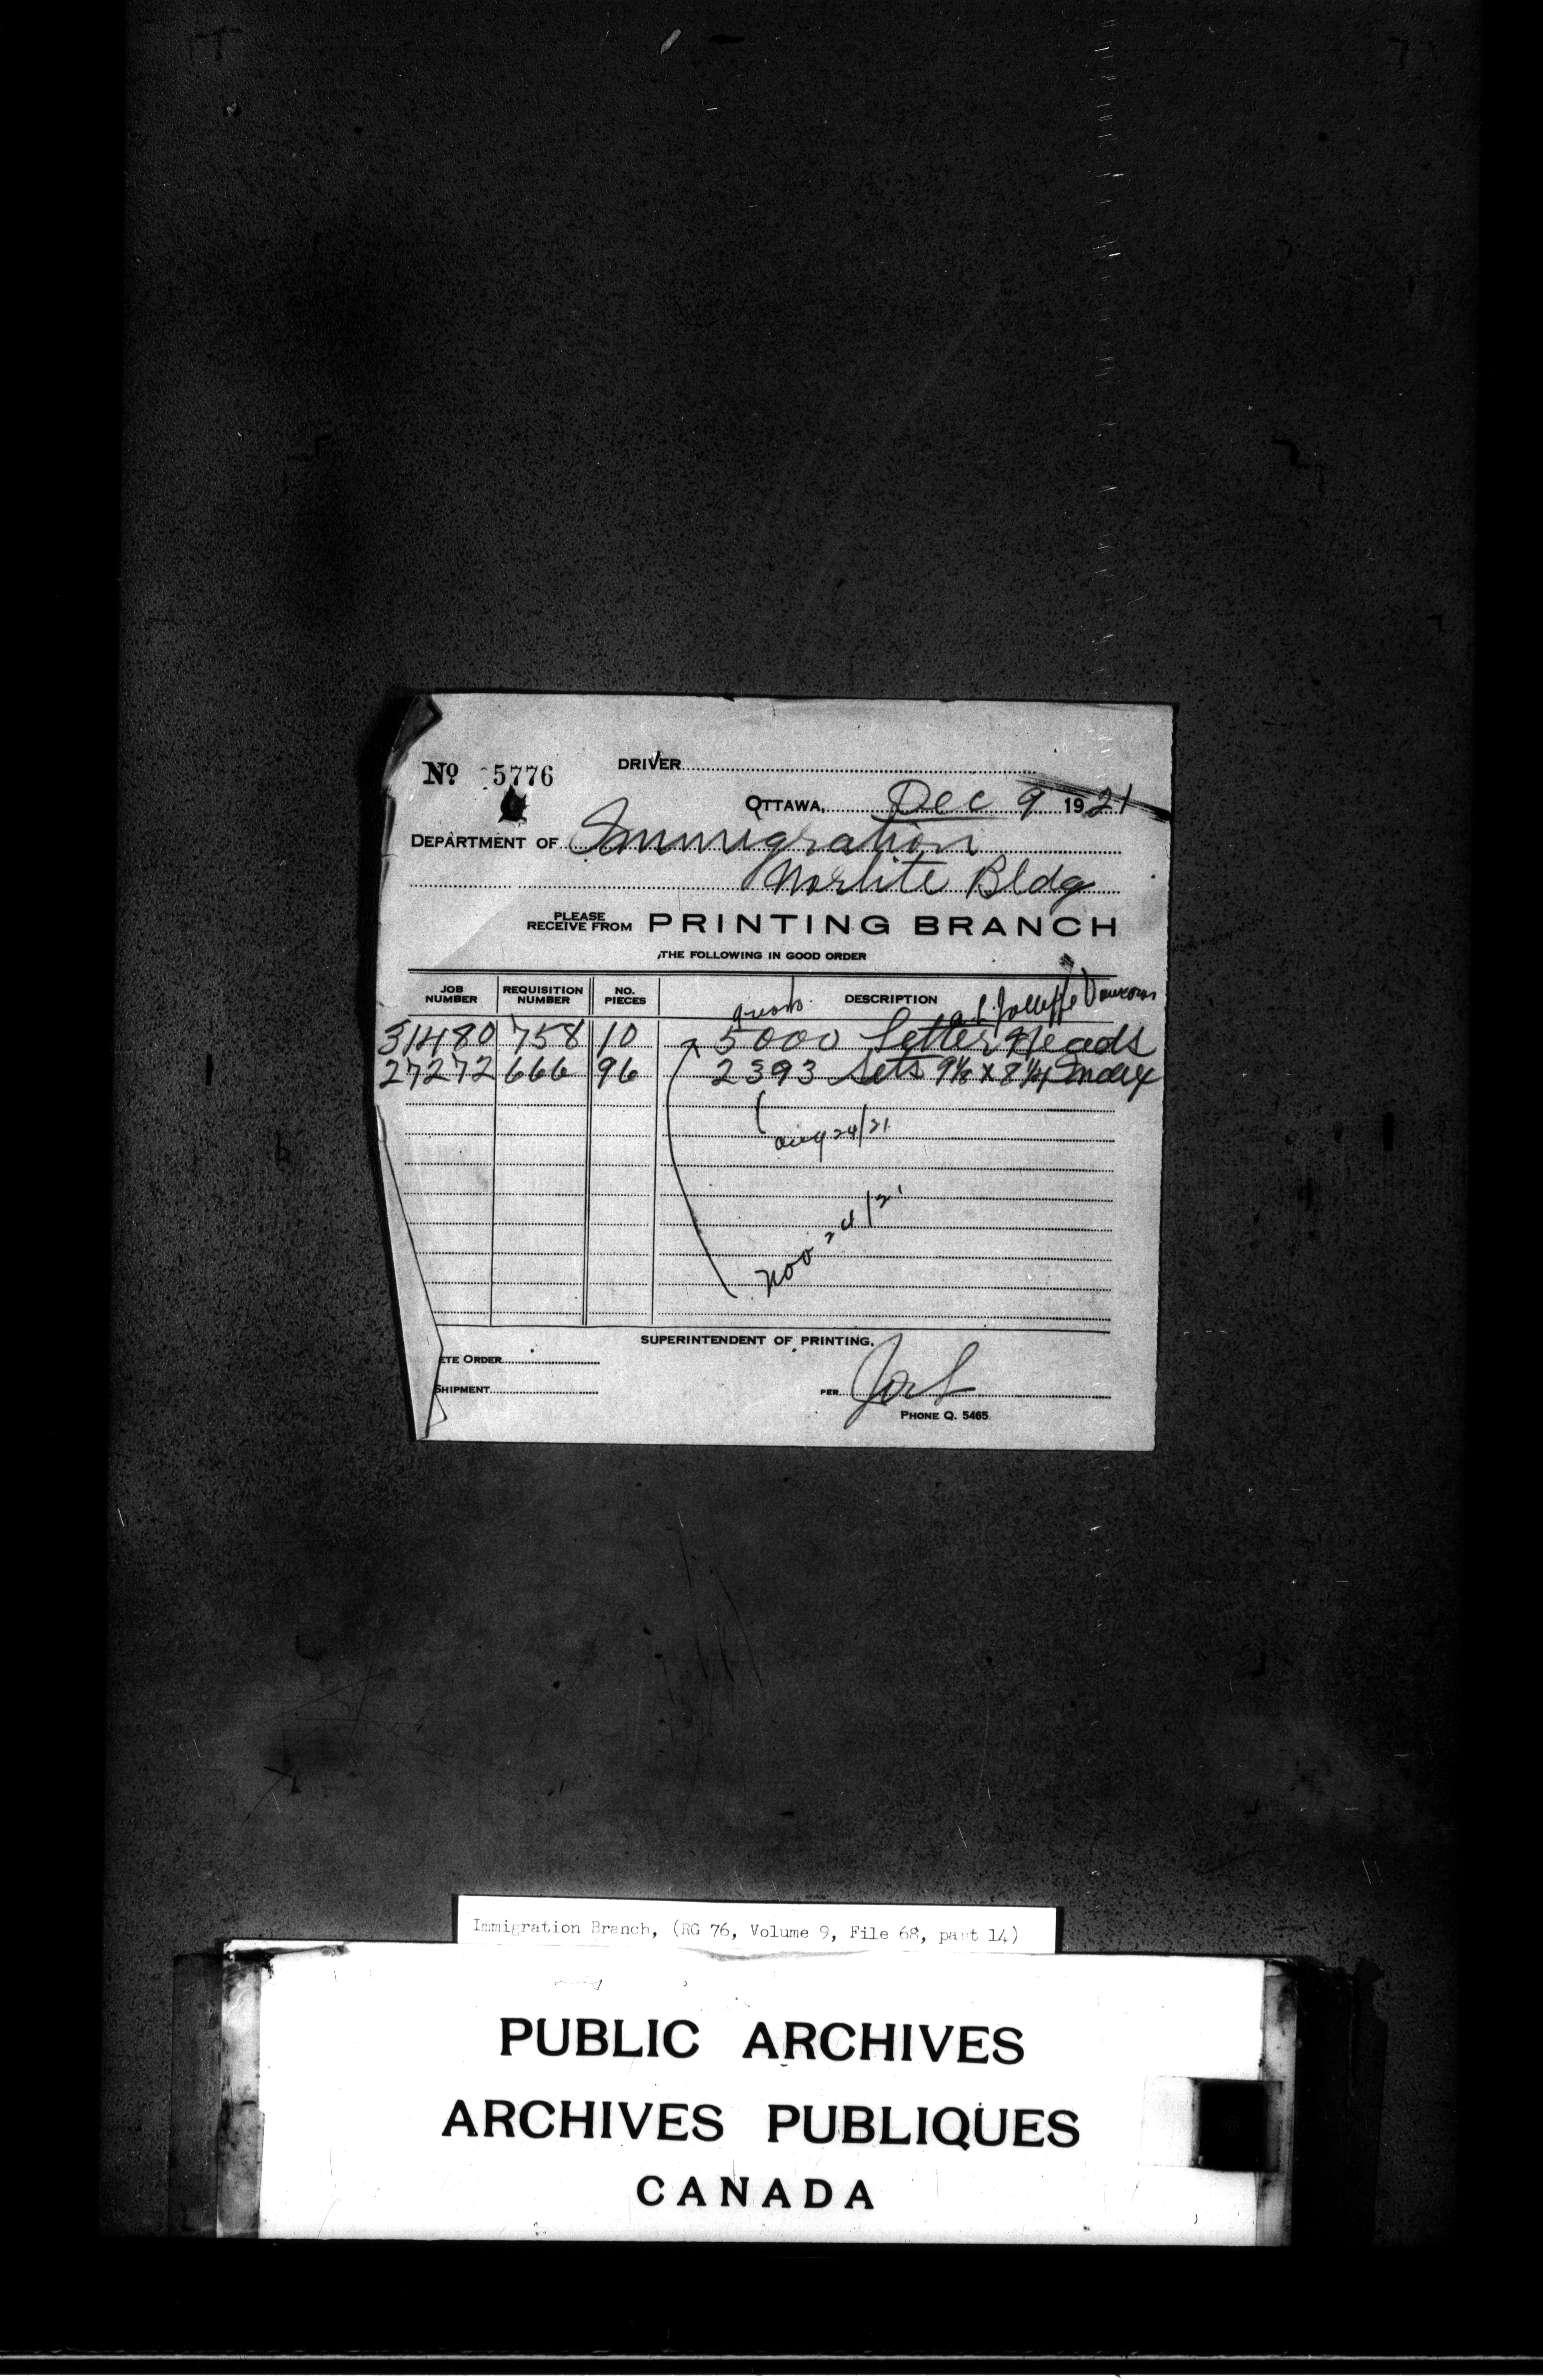 No 5776 DRIVER
OTTAWA, Dec 9 1921
DEPARTMENT OF Immigration
Norlite Bldg
PLEASE RECEIVE FROM PRINTING BRANCH
THE FOLLOWING IN GOOD ORDER
JOB NUMBER REQUISITION NUMBER NO. PIECES DESCRIPTION
Jolliffe
31480 758 10 5000 Letter Heads
27272 666 96 2393 Sets 9 1/8 x 8 1/4 Index
Aug 24/21
Nov 24/21
SUPERINTENDENT OF PRINTING.
ETE ORDER
SHIPMENT
PER
PHONE Q. 5465
Immigration Branch, (RG 76, Volume 9, File 68, part 14)
PUBLIC ARCHIVES
ARCHIVES PUBLIQUES
CANADA